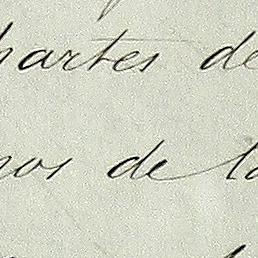 partes de
nos de la